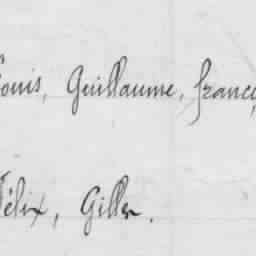 Louis, Guillaume, franç
Félix, Gilles.